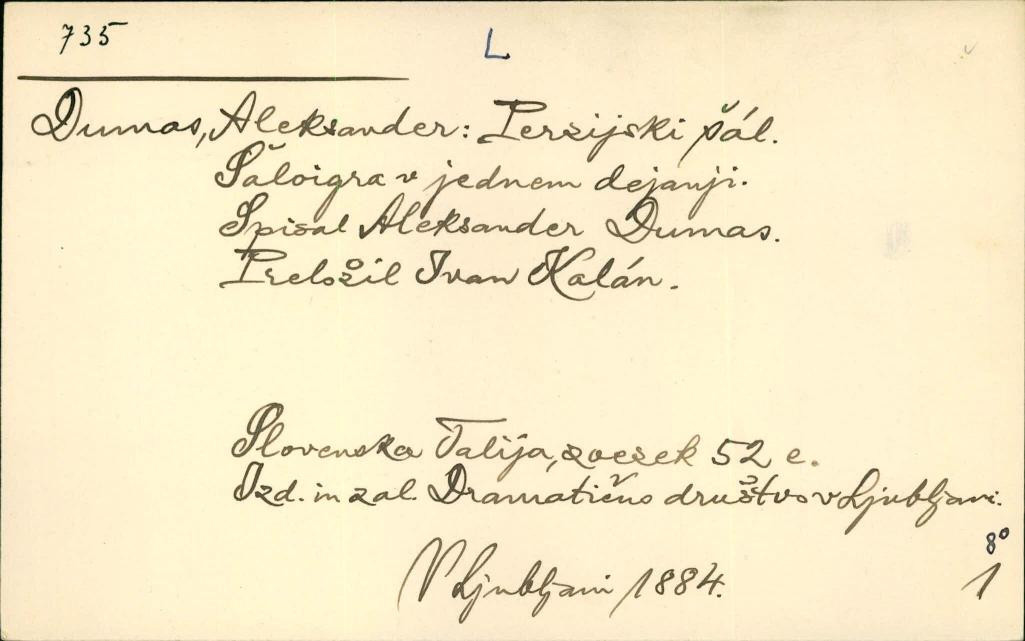 735
L
Dumas, Aleksander: Perzijski šál.
Šaloigra v jednem dejanji.
Spisal Aleksander Dumas.
Preložil Ivan Kalán.
Slovenska Talija, zvezek 52 e.
Izd. in zal. Dramatično društvo v Ljubljani.
8°
V Ljubljani 1884.
1